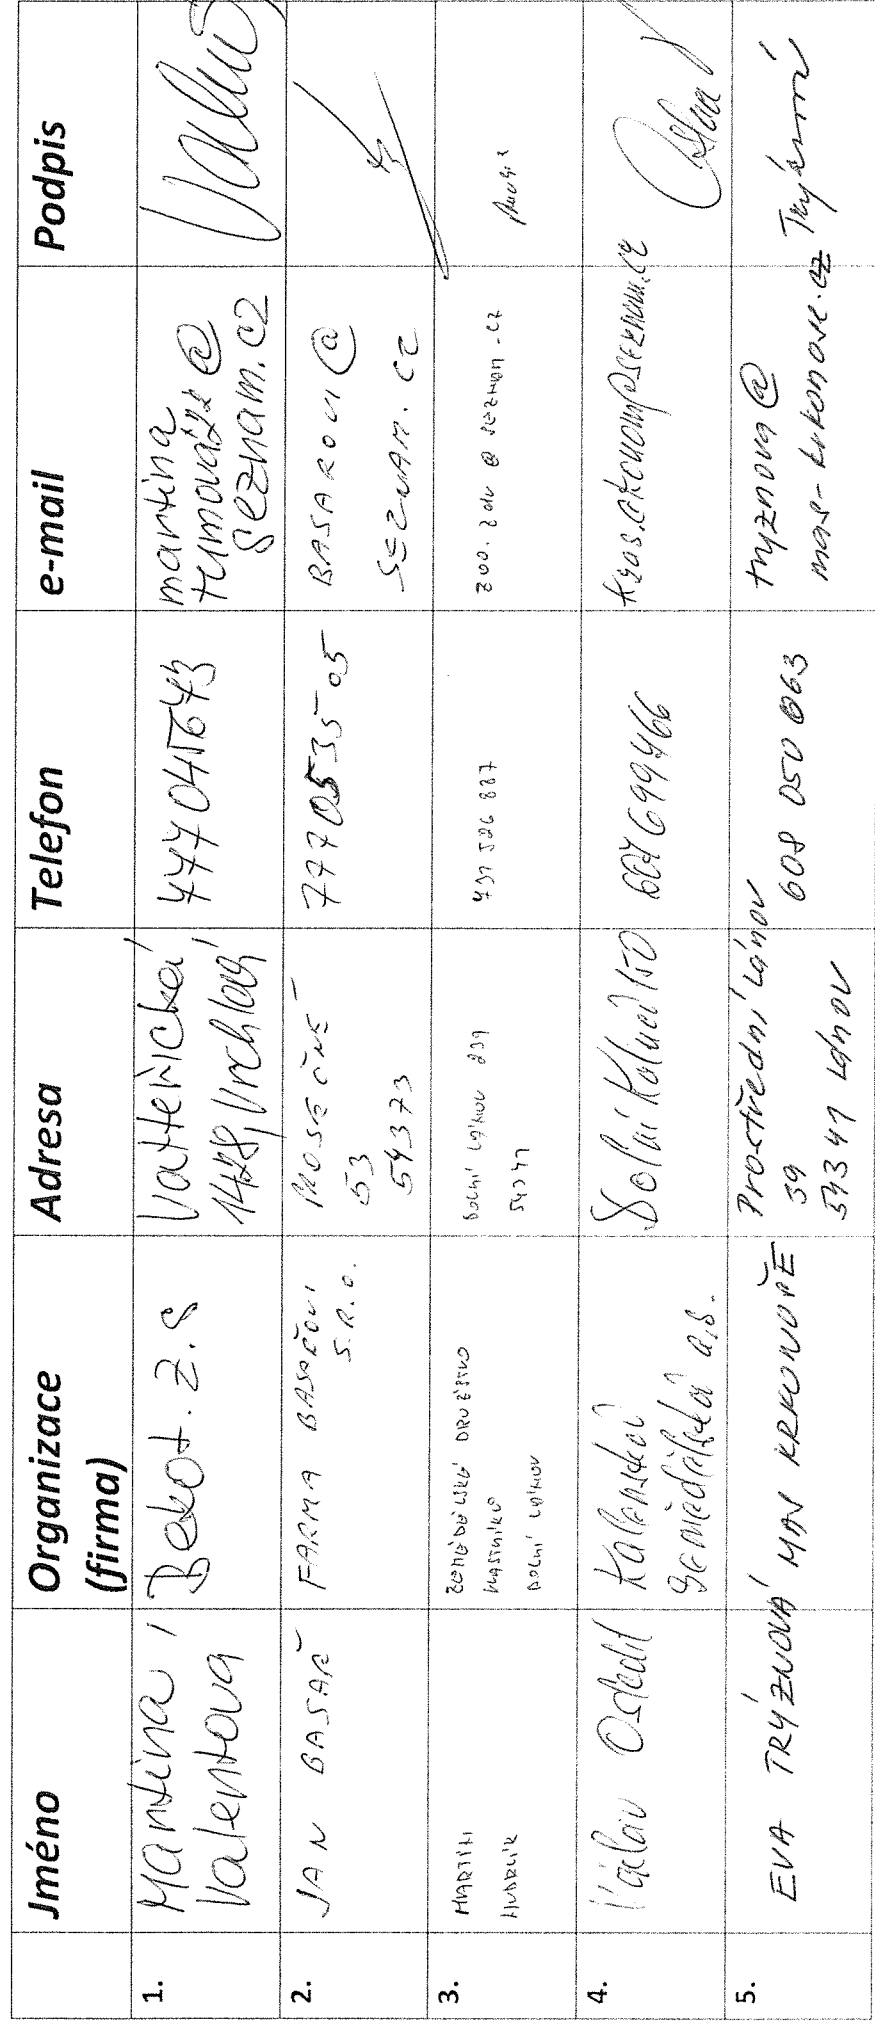 Jméno
Organizace
(firma)
Adresa
Telefon
e-mail
Podpis
1.
Martina
Valentová
Bekot. z. s
14 28, Vrchlabí
martina
seznam.cz
2.
JAN BASAŘ
FARMA BASAŘOVI
S.R.O.
PROSEČNÉ
53
54373
777053505
BASAROVI@
SEZNAM.CZ
3.
MARTIN
ZEMĚDĚLSKÉ DRUŽSTVO
VLASTNÍKŮ
DOLNÍ LÁNOV
DOLNÍ LÁNOV 239
54341
731 526 887
@ seznam.cz
4.
Václav Ostedil
Kalenská
zemědělská a.s.
Dolní Kalná 150
5.
EVA TRÝZNOVÁ
MAS KRKONOŠE
Prostřední Lánov
39
543 41 Lánov
608 050 063
tryznova@
mas-krkonose.cz
Trýznová